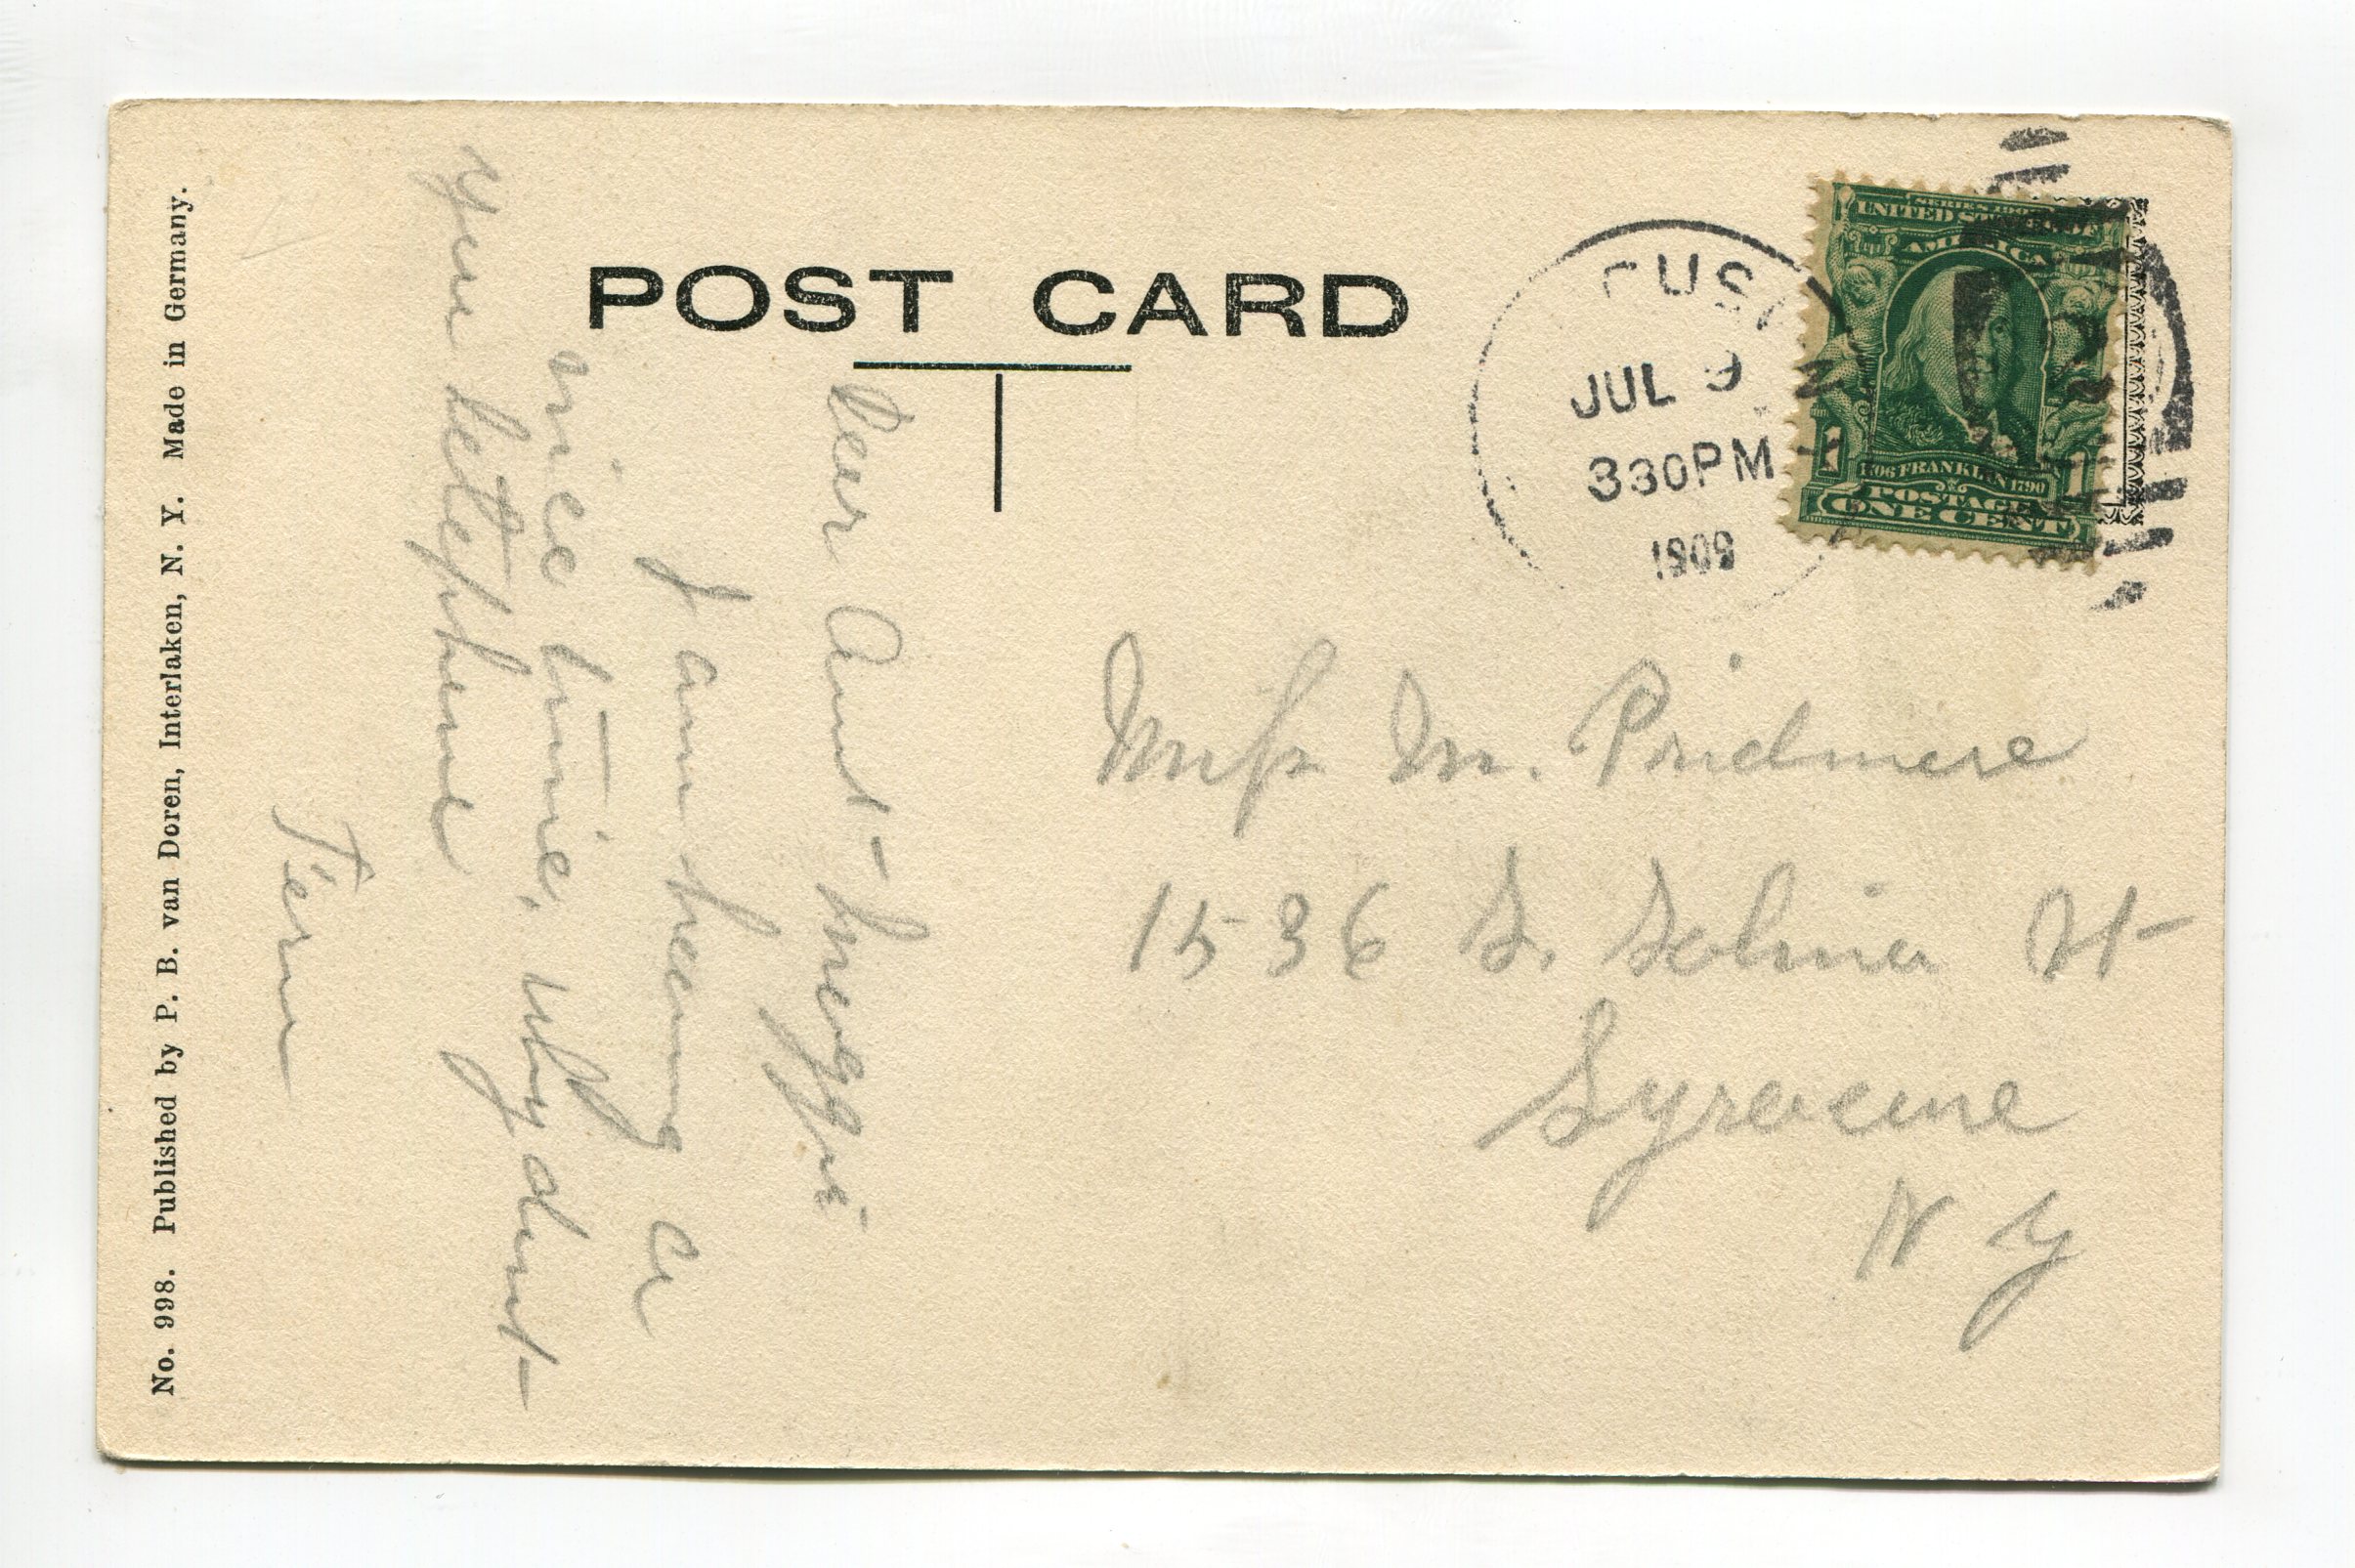 POST CARD
No. 998. Published by P. B. van Doren, Interlaken, N. Y. Made in Germany.
JUL 9
330PM
1908
N.Y.
SERIES 1902
UNITED STATES OF
AMERICA
1706 FRANKLIN 1790
POSTAGE
1 1
ONE CENT
Dear Aunt
I am having a
nice time. Why dont
you telephone
Fern
Miss M. Pridmore
1536 S. Salina St
Syracuse
N Y